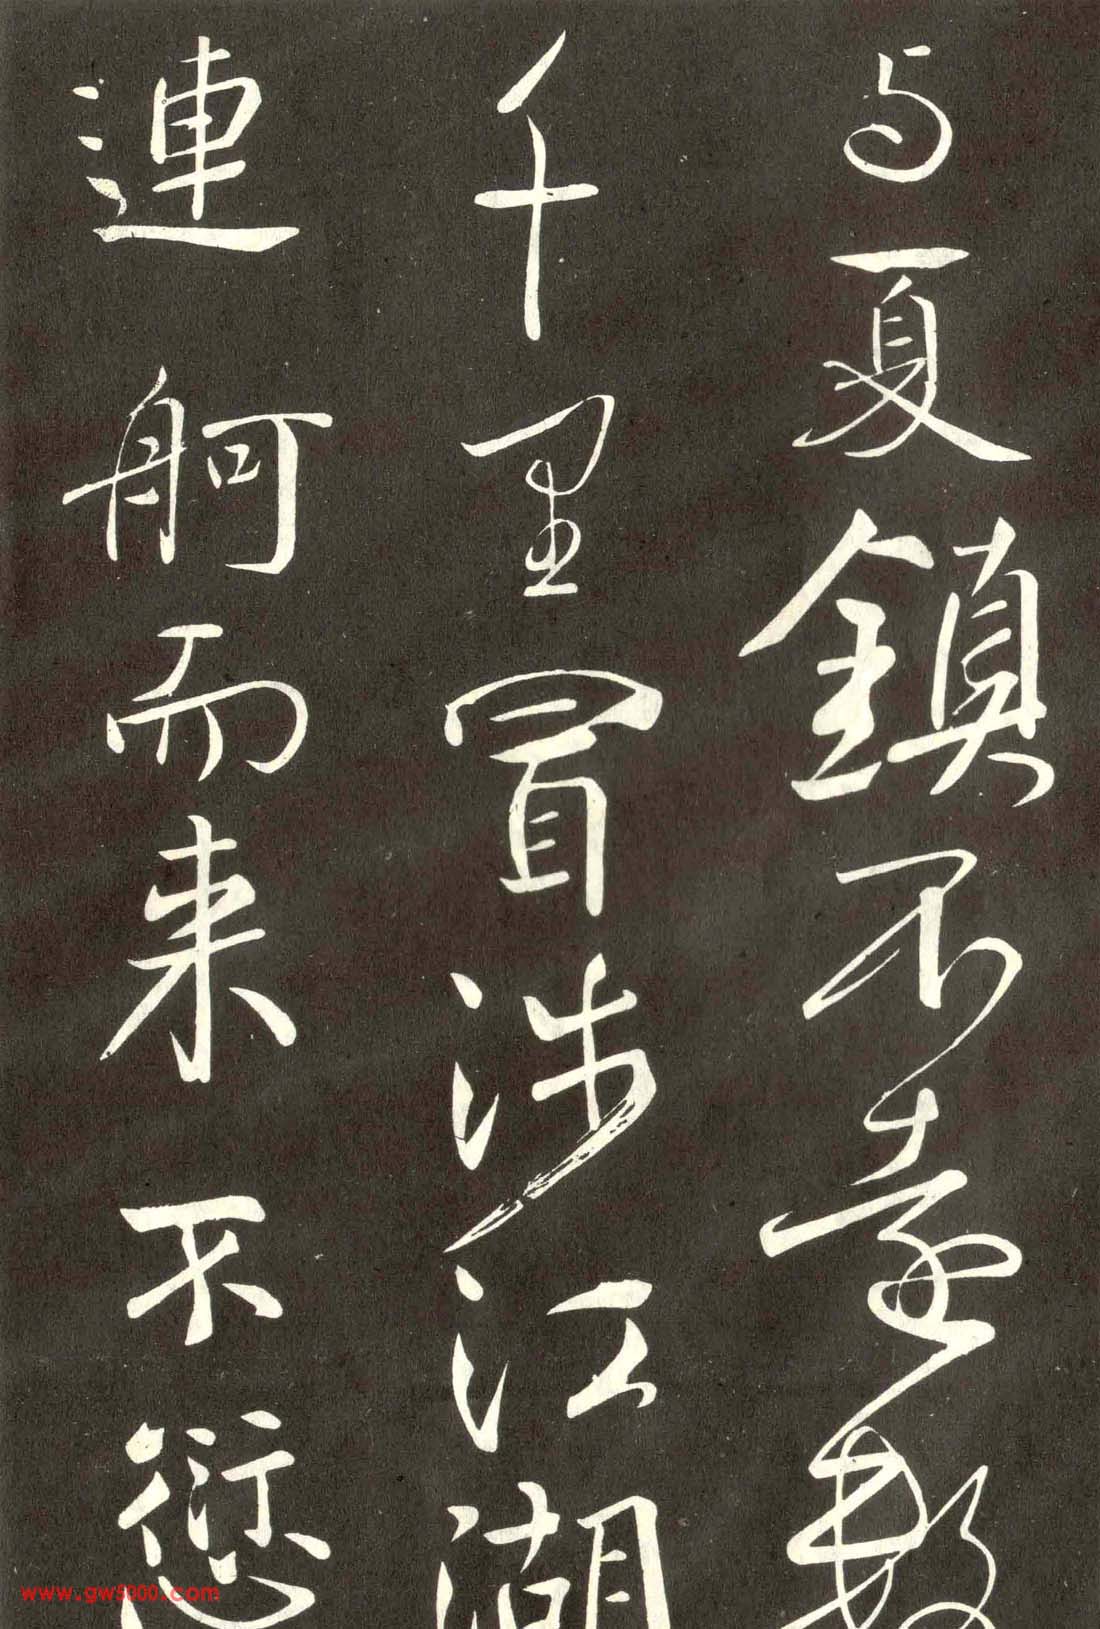 与夏鎮不遠數
千里冒涉江湖
連舸而来不愆
www.gw5000.com